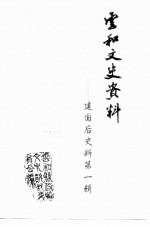 云和文史资料
建国后史料第一辑